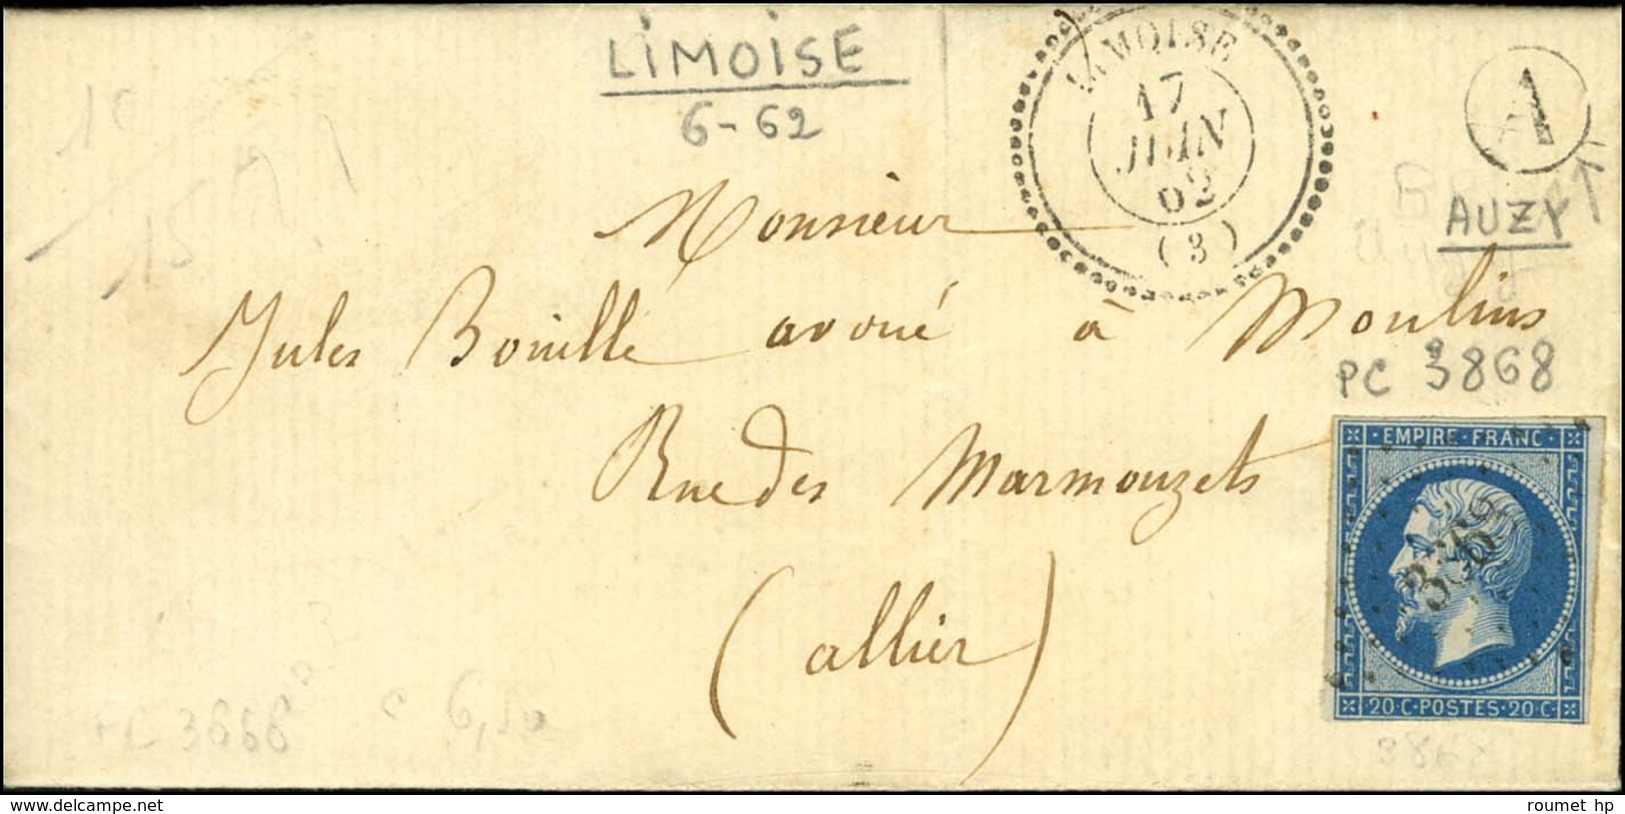 LIMOISE
6-62
LIMOISE
17
JUIN
62
(3)
A
AUZY
Monsieur
Jules Bouillé avoué à Moulins
PC 3868
Rue des Marmouzets
(allier)
EMPIRE · FRANC ·
3868
20 · C · POSTES · 20 · C
PC 3868
3868
www.delcampe.net
roumet hp